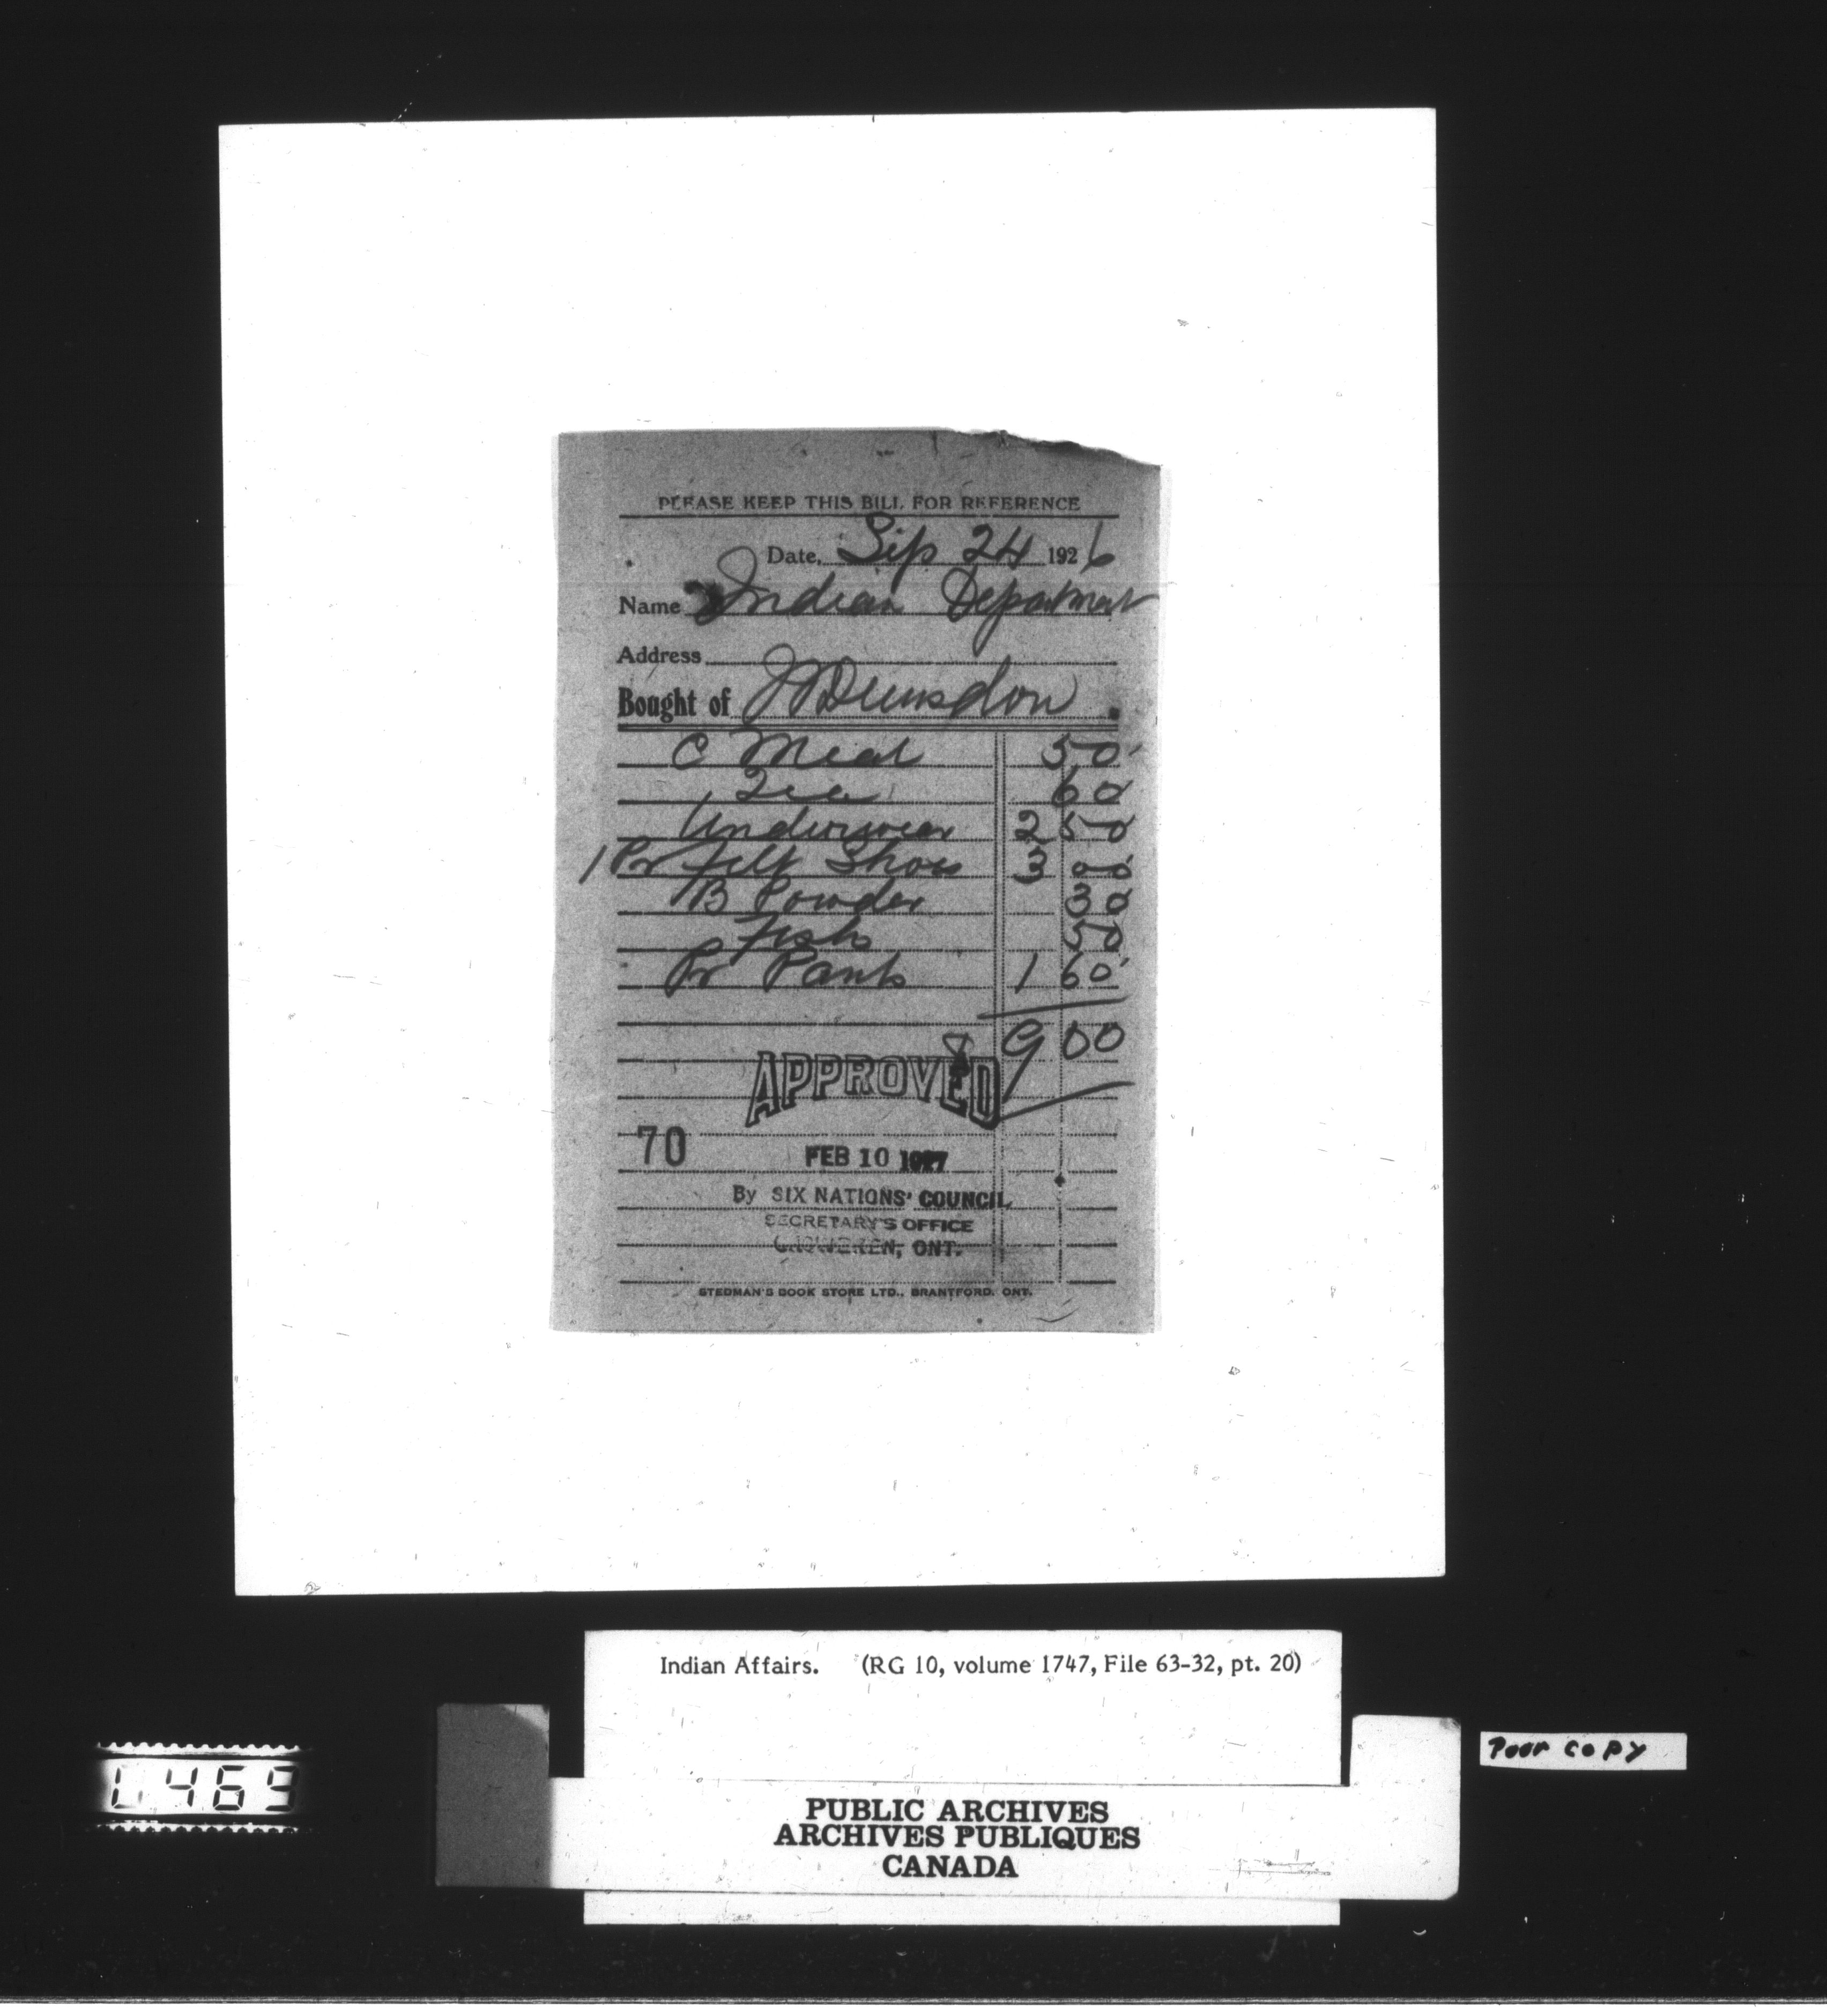 PLEASE KEEP THIS BILL FOR REFERENCE
Date, Sep 24 1926
Name Indian Department
Address
Bought of J Dunsdon
C Meal 50
Tea 60
Underwear 2 50
1 Pr felt Shoes 3 00
B Powder 30
Fish 50
Pr Pants 1 60
9 00
APPROVED
70
FEB 10 1927
By SIX NATIONS' COUNCIL
SECRETARY'S OFFICE
OHSWEKEN, ONT.
STEDMAN'S BOOK STORE LTD., BRANTFORD, ONT.
Indian Affairs. (RG 10, volume 1747, File 63-32, pt. 20)
Poor copy
L 469
PUBLIC ARCHIVES
ARCHIVES PUBLIQUES
CANADA